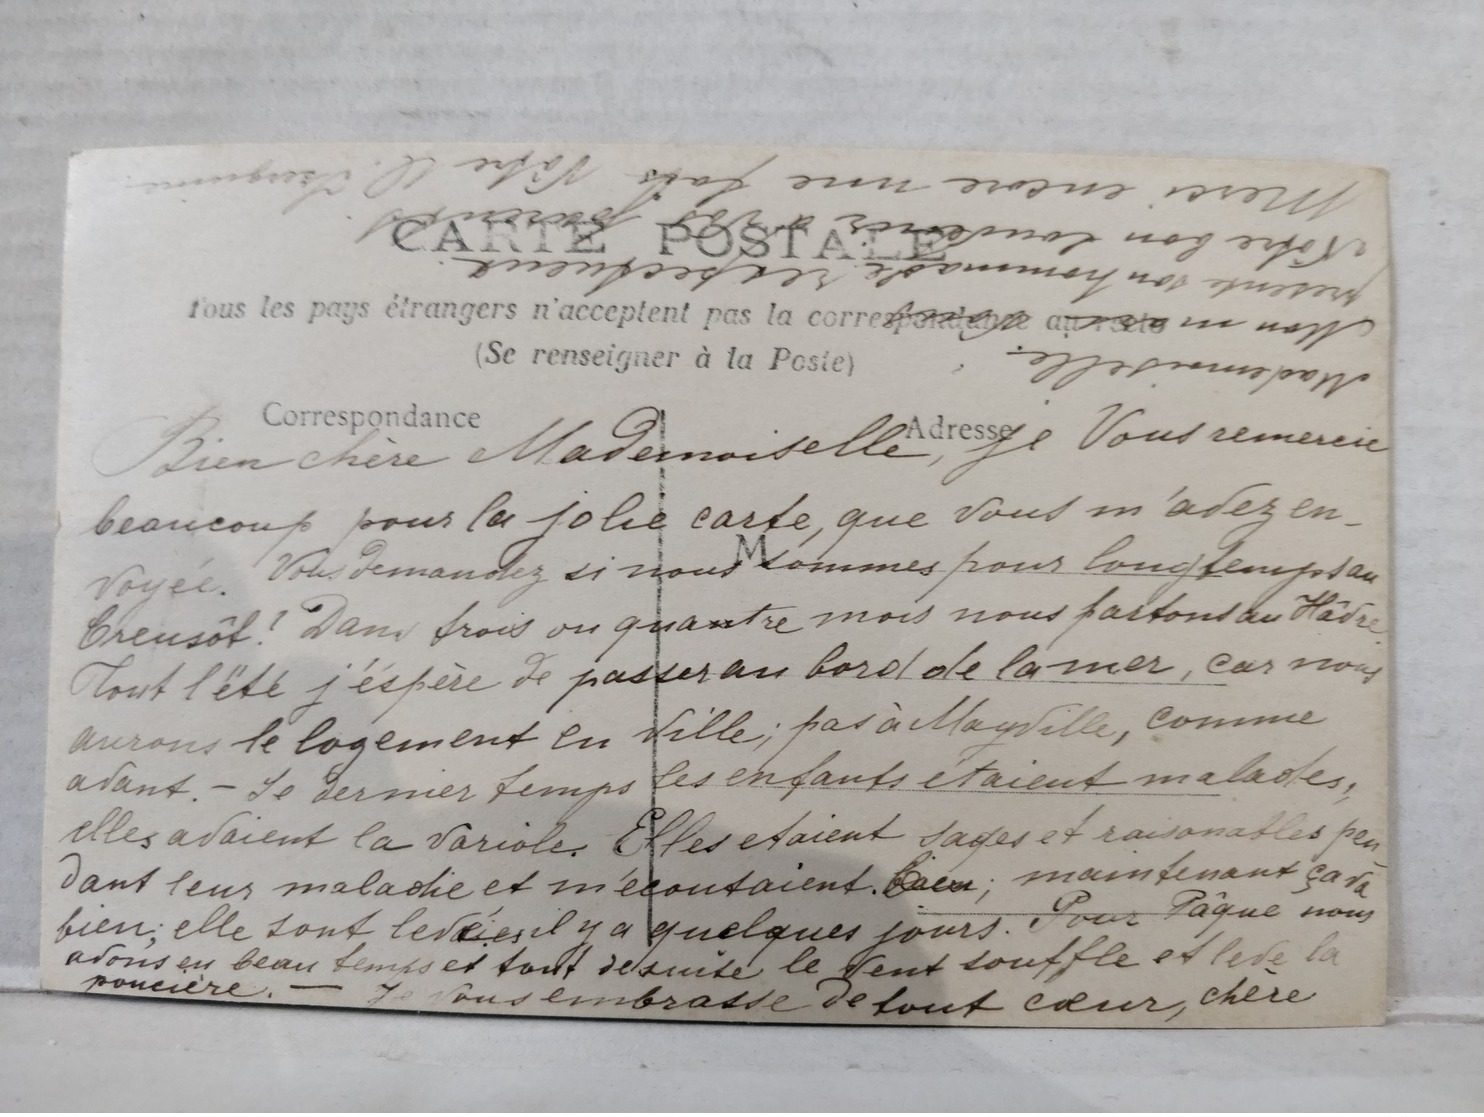 CARTE POSTALE
Tous les pays étrangers n'acceptent pas la correspondance au recto
(Se renseigner à la Poste)
Correspondance
Adresse
M
Bien chère Mademoiselle, je Vous remercie
beaucoup pour la jolie carte, que vous m'avez en-
voyée. Vous demandez si nous sommes pour longtemps au
Creusôt! Dans trois ou quantre mois nous partons au Hâvre.
Tout l'été j'éspère de passer au bord de la mer, car nous
aurons le logement en ville; pas à Mayville, comme
avant. – Je dernier temps les enfants étaient malades,
elles avaient la variole. Elles etaient sages et raisonables pen
dant leur maladie et m'écoutaient. ; maintenant ça va
bien; elle sont levées il y a quelques jours. Pour Pâque nous
avons eu beau temps et tout de suite le vent souffle et leve la
pouciere. — Je vous embrasse de tout cœur, chère
Mademoiselle.
Mon m
presente son hommage respectueux.
Votre bon
Merci encore une fois Vôtre